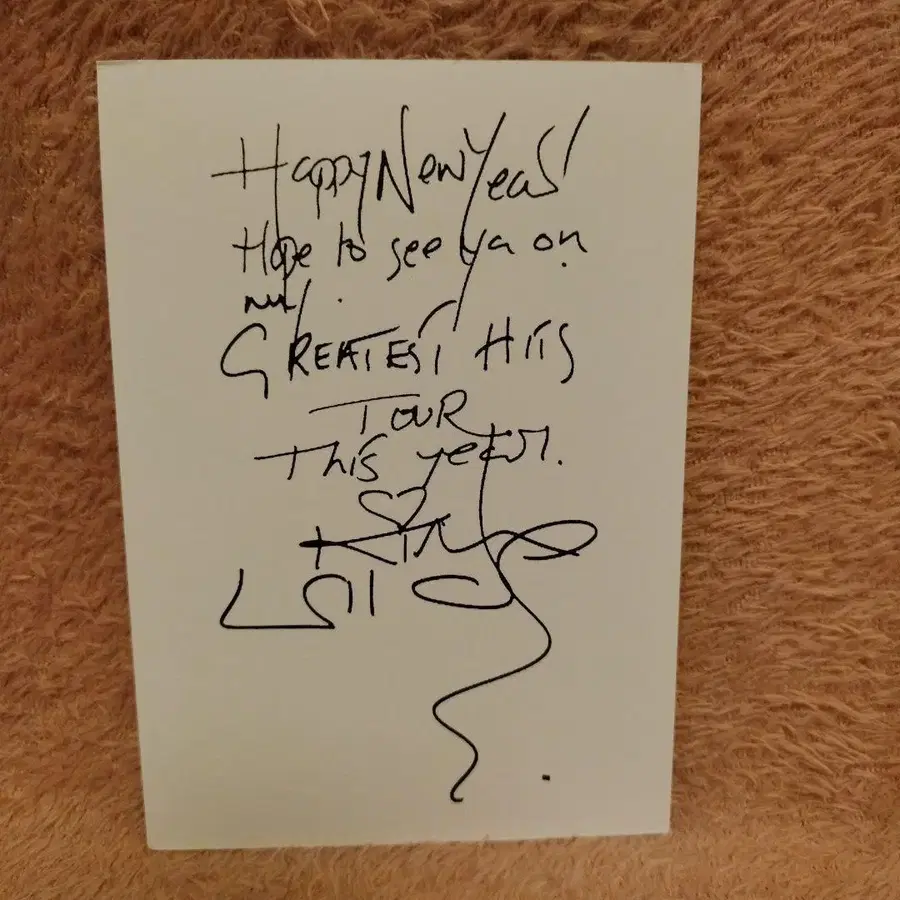 Happy New Year!
Hope to see ya on
my
GREATEST HITS
TOUR
This year.
Kim